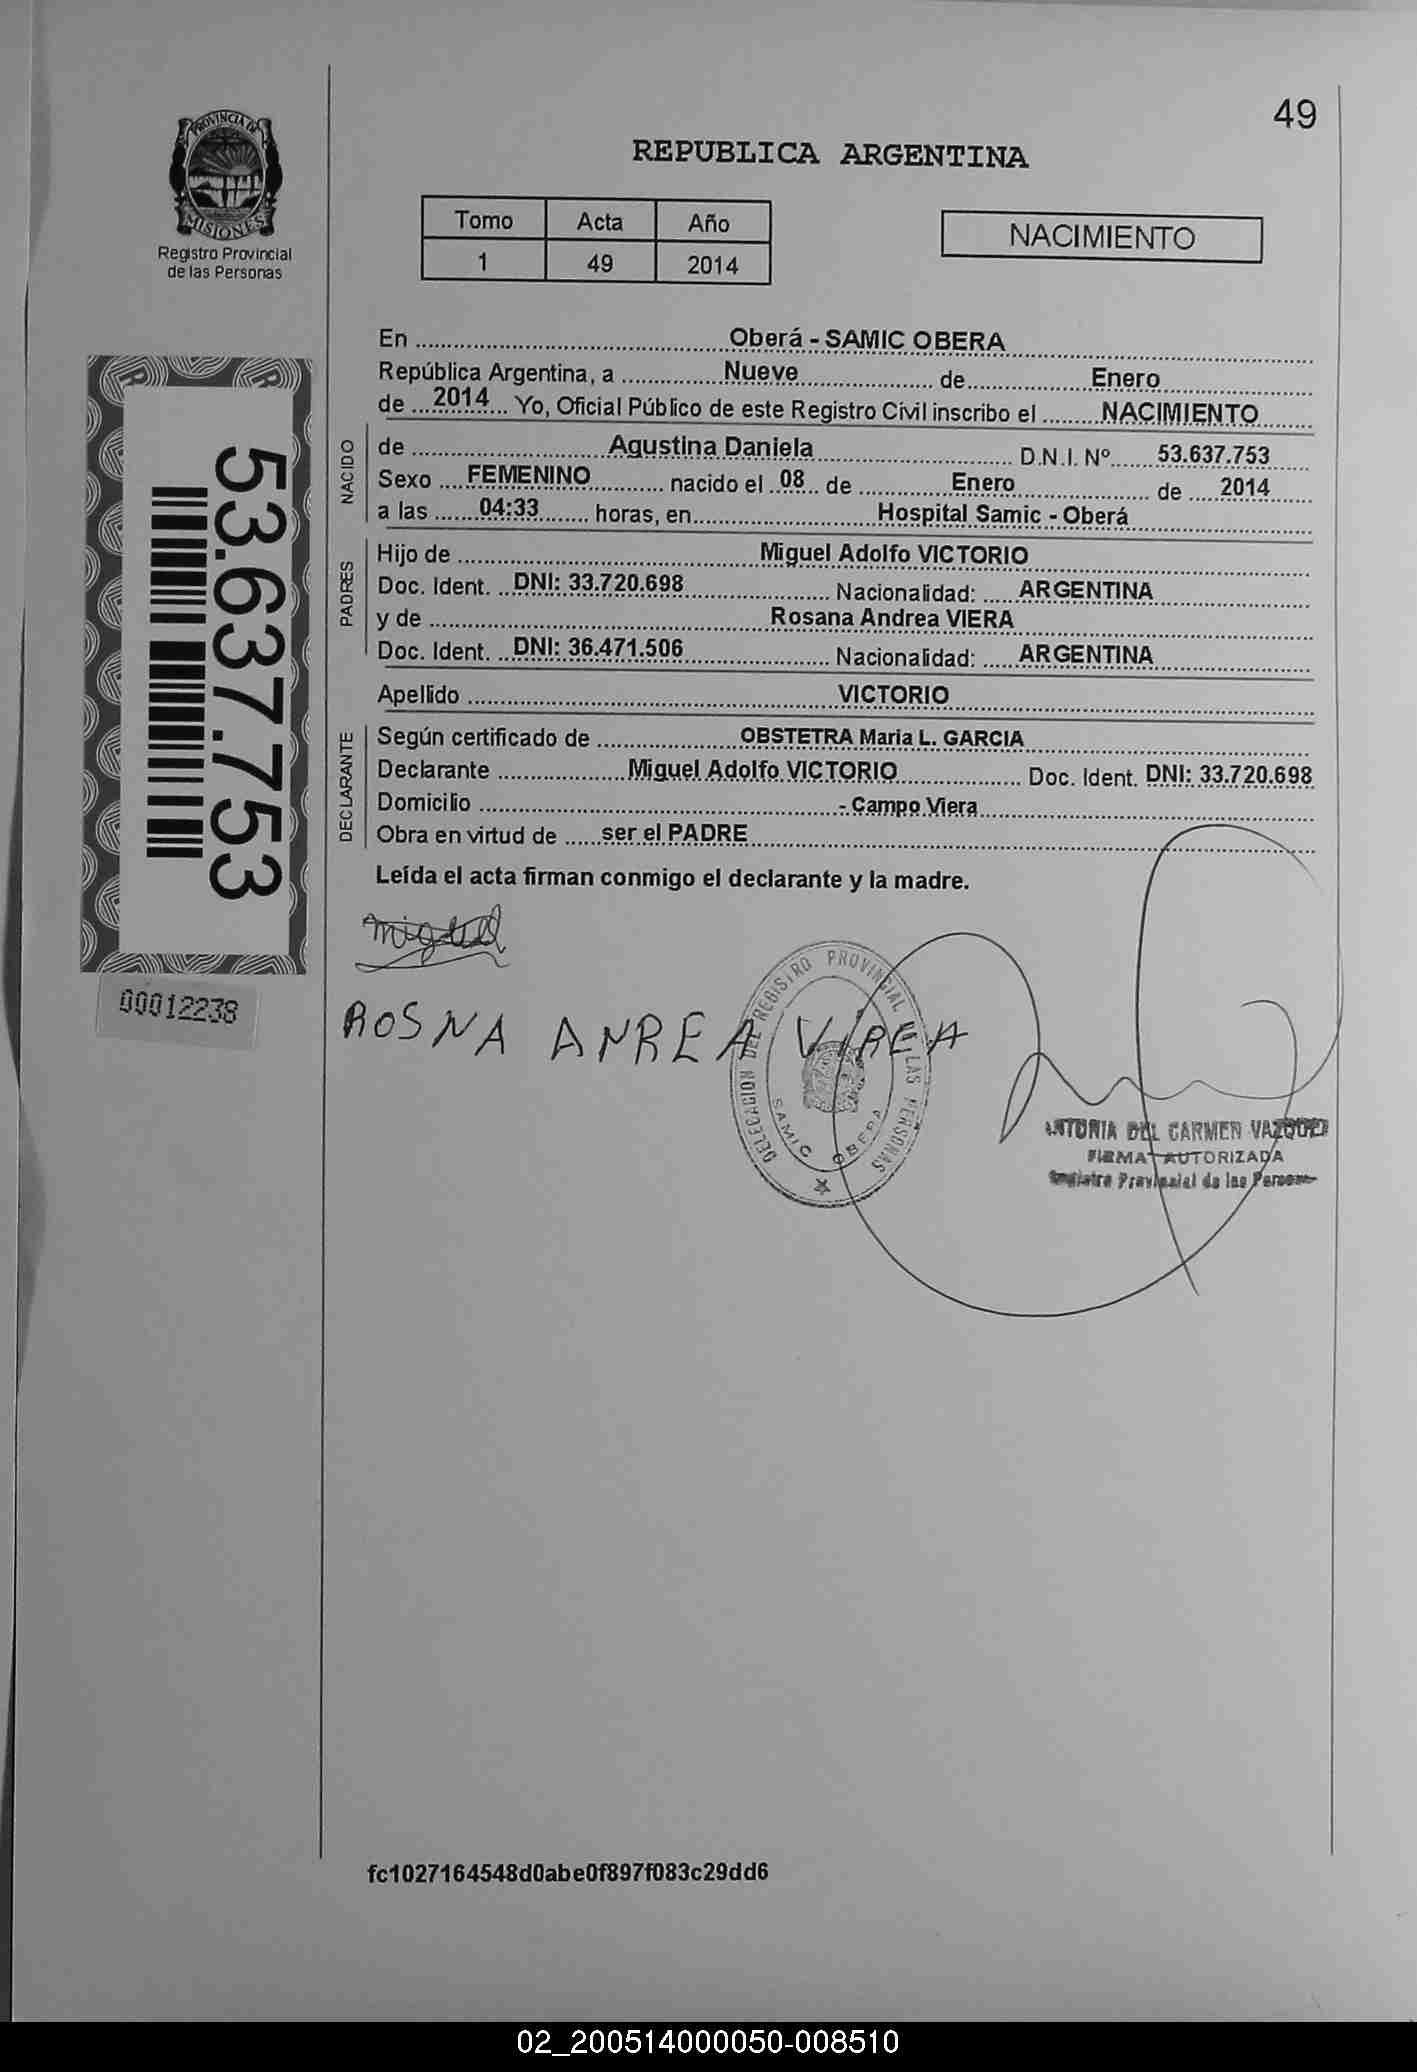 49
PROVINCIA DE
MISIONES
Registro Provincial
de las Personas
REPUBLICA ARGENTINA
Tomo Acta Año
1 49 2014
NACIMIENTO
53.637.753
00012238
En ........ Oberá - SAMIC OBERA
República Argentina, a ........ Nueve ........ de ........ Enero
de ... 2014 ... Yo, Oficial Público de este Registro Civil inscribo el ........ NACIMIENTO
NACIDO
de ........ Agustina Daniela ........ D.N.I. Nº ...... 53.637.753
Sexo .... FEMENINO ........ nacido el .. 08 .. de ........ Enero ........ de .... 2014
a las ...... 04:33 ...... horas, en ........ Hospital Samic - Oberá
PADRES
Hijo de ........ Miguel Adolfo VICTORIO
Doc. Ident. .. DNI: 33.720.698 ........ Nacionalidad: ..... ARGENTINA
y de ........ Rosana Andrea VIERA
Doc. Ident. .. DNI: 36.471.506 ........ Nacionalidad: ..... ARGENTINA
Apellido ........ VICTORIO
DECLARANTE
Según certificado de ........ OBSTETRA Maria L. GARCIA
Declarante ........ Miguel Adolfo VICTORIO ........ Doc. Ident. DNI: 33.720.698
Domicilio ........ - Campo Viera
Obra en virtud de ..... ser el PADRE
Leída el acta firman conmigo el declarante y la madre.
miguel
ROSNA ANREA VIREA
DELEGACION DEL REGISTRO PROVINCIAL DE LAS PERSONAS
SAMIC OBERA
DEL CARMEN VAZQUEZ
FIRMA AUTORIZADA
Registro Provincial de las Personas
fc1027164548d0abe0f897f083c29dd6
02_200514000050-008510